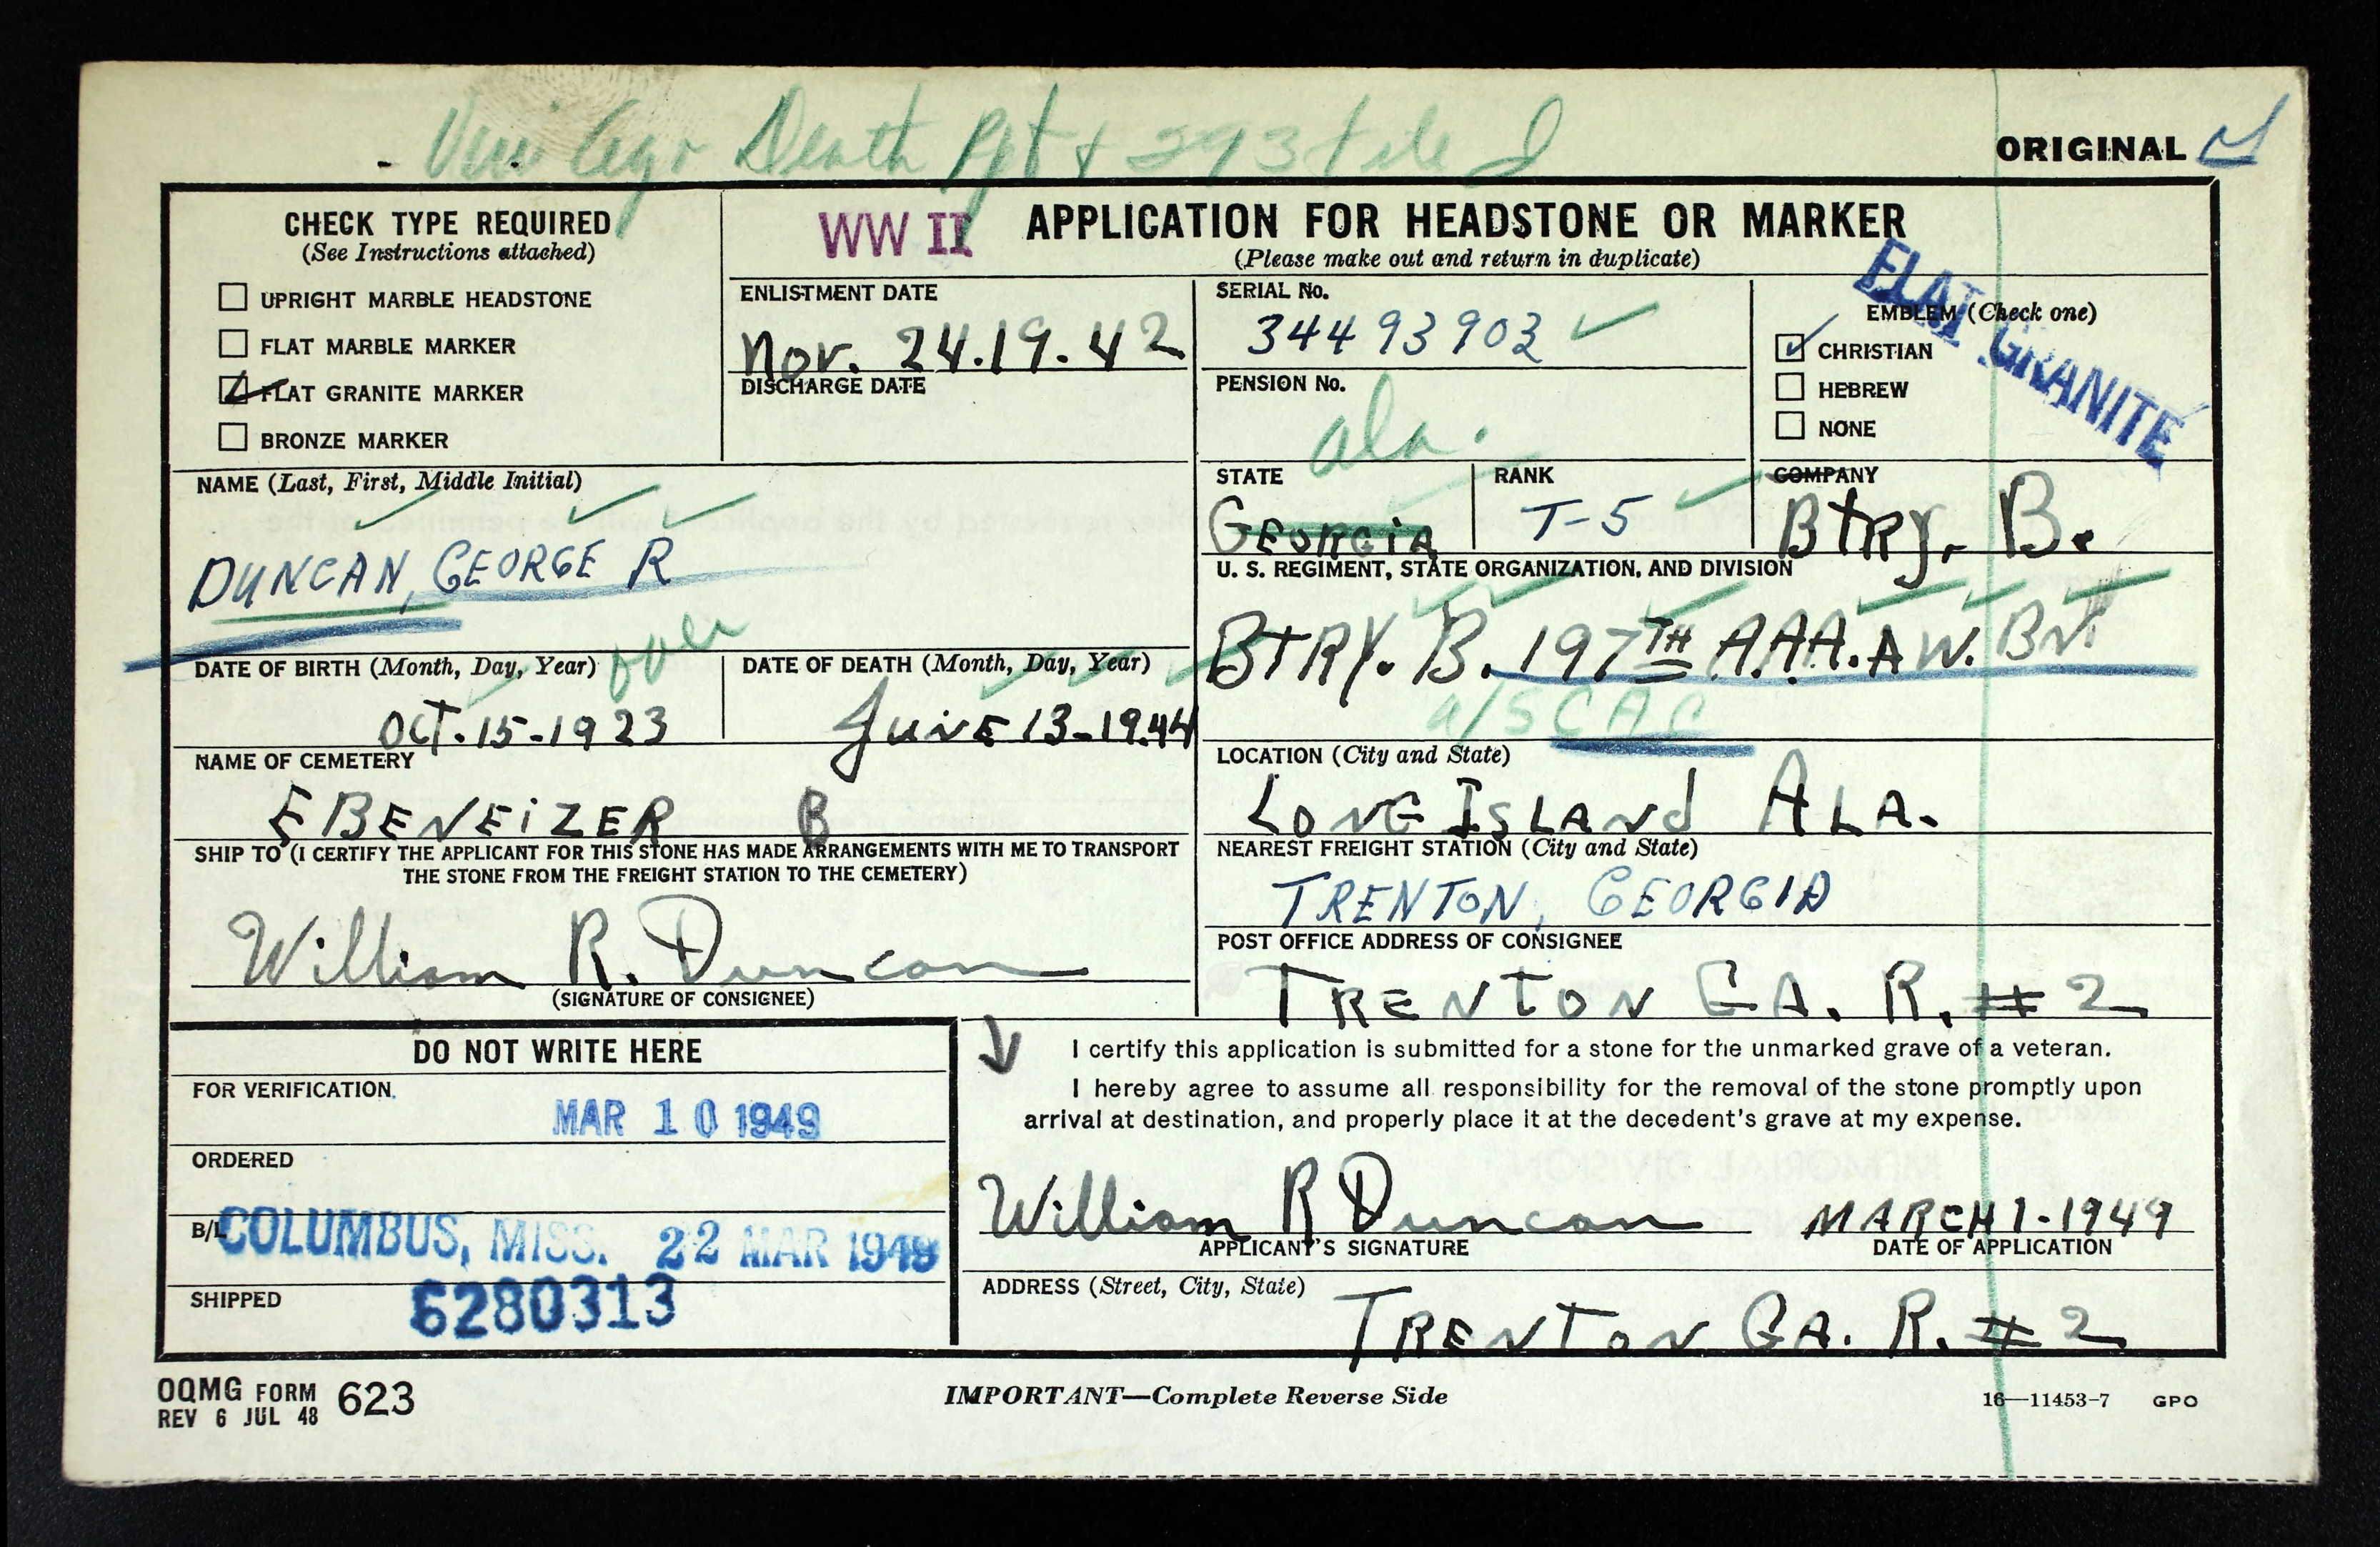 Death Rpt & 293 file
ORIGINAL
CHECK TYPE REQUIRED
(See Instructions attached)
UPRIGHT MARBLE HEADSTONE
FLAT MARBLE MARKER
FLAT GRANITE MARKER
BRONZE MARKER
WW II APPLICATION FOR HEADSTONE OR MARKER
(Please make out and return in duplicate)
ENLISTMENT DATE
Nov. 24.19.42
DISCHARGE DATE
SERIAL No.
34493903
PENSION No.
Ala.
FLAT GRANITE
EMBLEM (Check one)
CHRISTIAN
HEBREW
NONE
NAME (Last, First, Middle Initial)
DUNCAN, GEORGE R
STATE
GEORGIA
RANK
T-5
COMPANY
BtRy. B.
U. S. REGIMENT, STATE ORGANIZATION, AND DIVISION
BTRY. B. 197TH A.A.A. A W. BN.
A/S CAC
DATE OF BIRTH (Month, Day, Year)
OCT. 15-1923
DATE OF DEATH (Month, Day, Year)
JUNE 13-1944
NAME OF CEMETERY
EBENEiZER B
LOCATION (City and State)
LONG ISLANd ALA.
SHIP TO (I CERTIFY THE APPLICANT FOR THIS STONE HAS MADE ARRANGEMENTS WITH ME TO TRANSPORT
THE STONE FROM THE FREIGHT STATION TO THE CEMETERY)
William R. Duncan
(SIGNATURE OF CONSIGNEE)
NEAREST FREIGHT STATION (City and State)
TRENTON, GEORGIA
POST OFFICE ADDRESS OF CONSIGNEE
TRENTON GA. R. # 2
DO NOT WRITE HERE
FOR VERIFICATION
MAR 10 1949
ORDERED
B/L COLUMBUS, MISS. 22 MAR 1949
SHIPPED
6280313
I certify this application is submitted for a stone for the unmarked grave of a veteran.
I hereby agree to assume all responsibility for the removal of the stone promptly upon
arrival at destination, and properly place it at the decedent's grave at my expense.
William R Duncan MARCH 1-1949
APPLICANT'S SIGNATURE DATE OF APPLICATION
ADDRESS (Street, City, State)
TRENTON GA. R. # 2
OQMG FORM 623
REV 6 JUL 48
IMPORTANT—Complete Reverse Side
16—11453-7 GPO